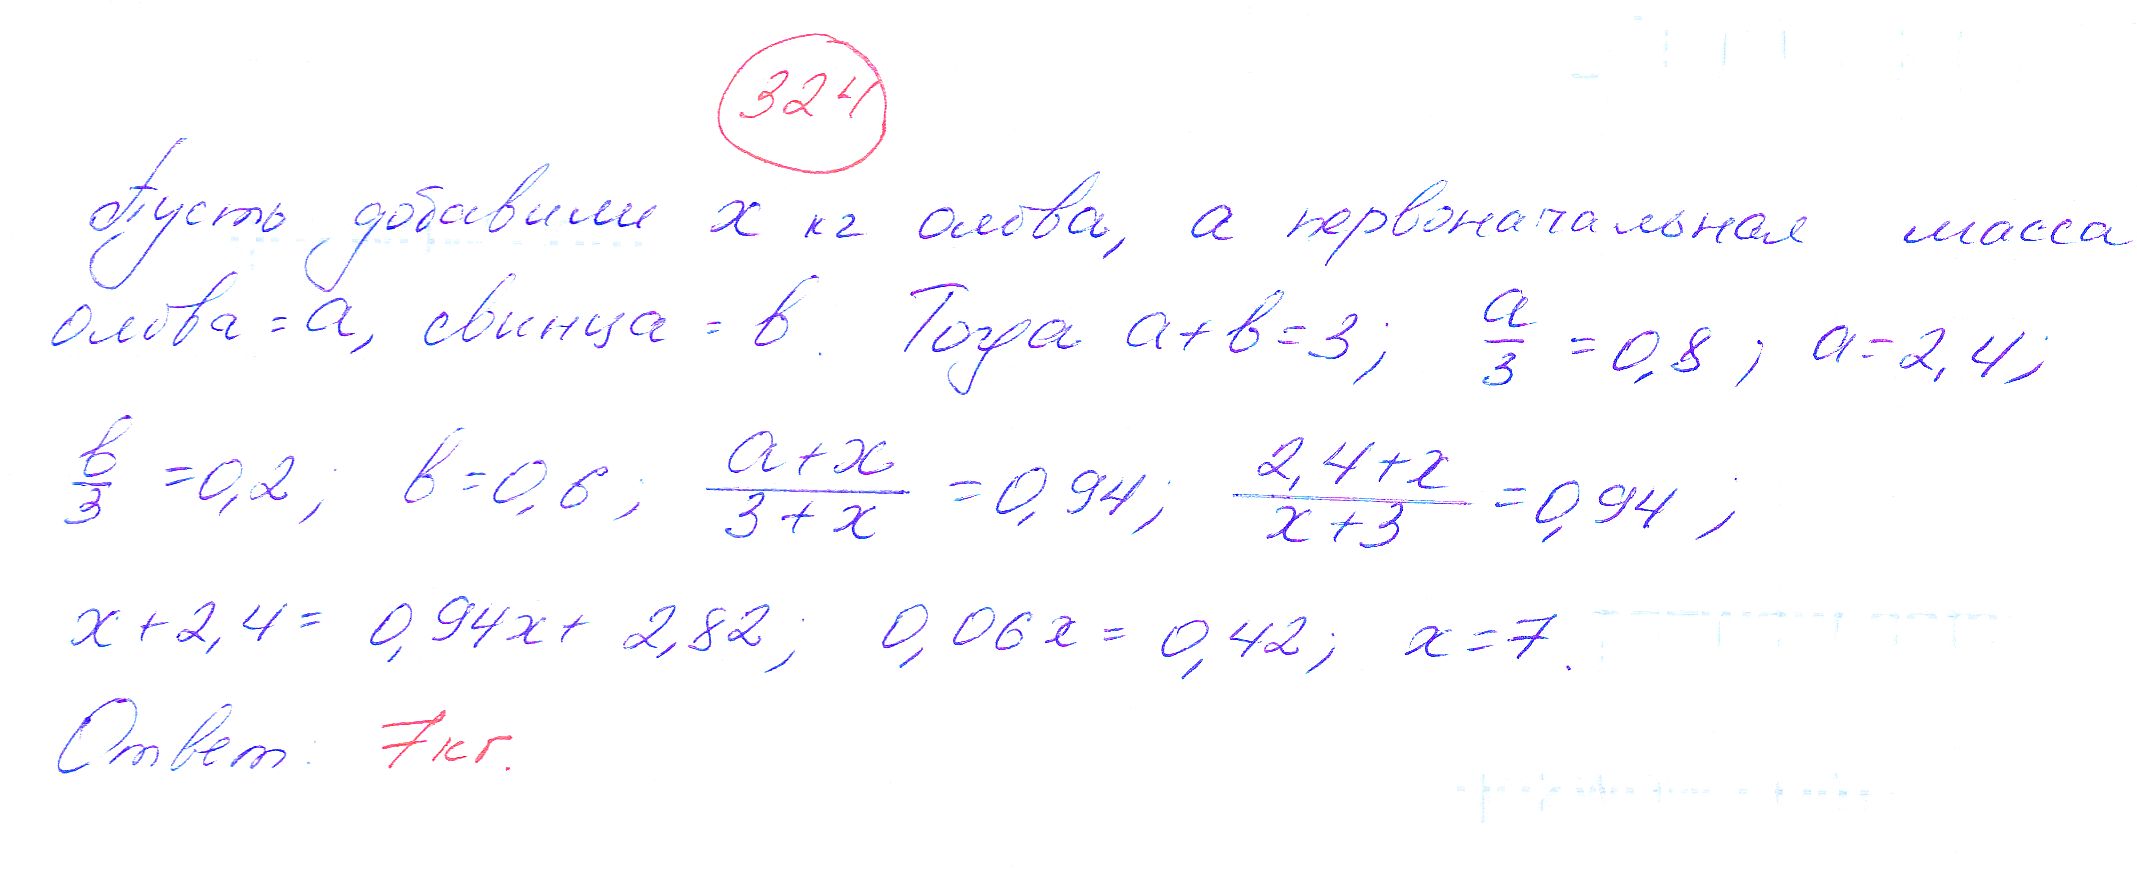 324
Пусть добавили x кг олова, а первоначальная масса
олова = a, свинца = b. Тогда a+b=3; a/3 = 0,8; a=2,4;
b/3 = 0,2; b=0,6; (a+x)/(3+x) = 0,94; (2,4+x)/(x+3) = 0,94;
x+2,4 = 0,94x + 2,82; 0,06x = 0,42; x=7.
Ответ: 7кг.